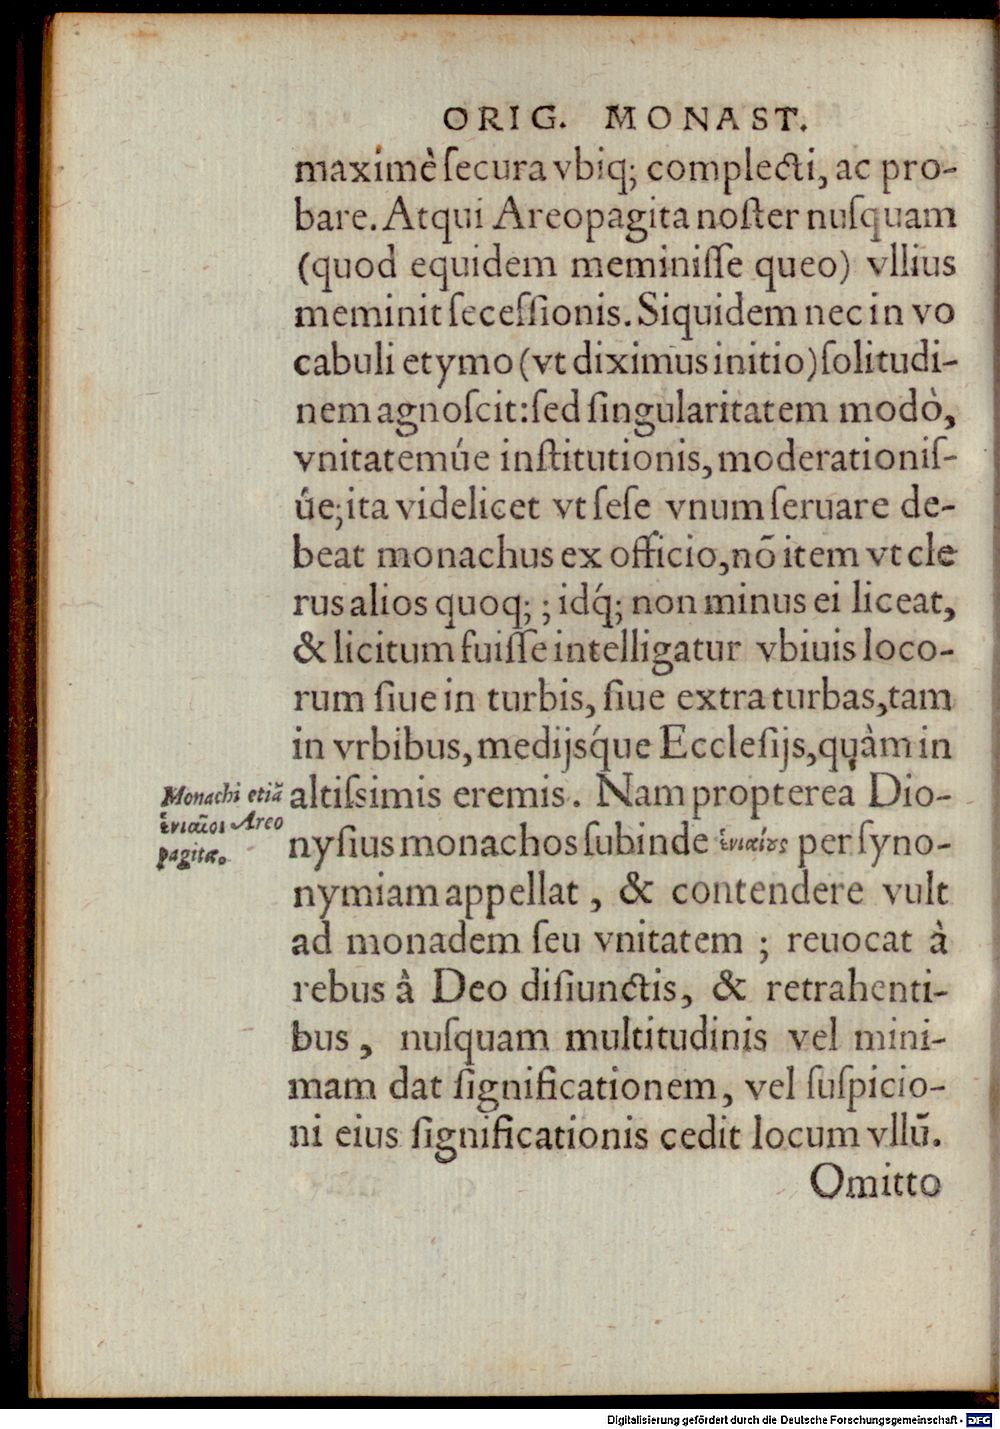 ORIG. MONAST.
maximè ſecura vbiq; complecti, ac pro-
bare. Atqui Areopagita noſter nuſquam
(quod equidem meminiſſe queo) vllius
meminit ſeceſſionis. Siquidem nec in vo
cabuli etymo (vt diximus initio) ſolitudi-
nem agnoſcit: ſed ſingularitatem modò,
vnitatemúe inſtitutionis, moderationiſ-
úe; ita videlicet vt ſeſe vnum ſeruare de-
beat monachus ex officio, nō item vt cle
rus alios quoq; ; idq́; non minus ei liceat,
& licitum fuiſſe intelligatur vbiuis loco-
rum ſiue in turbis, ſiue extra turbas, tam
in vrbibus, medijsq́ue Eccleſijs, quàm in
Monachi etiā
ἑνιαῖοι Areo
pagitæ.
altiſsimis eremis. Nam propterea Dio-
nyſius monachos ſubinde ἑνιαίȣς per ſyno-
nymiam appellat, & contendere vult
ad monadem ſeu vnitatem ; reuocat à
rebus à Deo diſiunctis, & retrahenti-
bus, nuſquam multitudinis vel mini-
mam dat ſignificationem, vel ſuſpicio-
ni eius ſignificationis cedit locum vllū.
Omitto
Digitalisierung gefördert durch die Deutsche Forschungsgemeinschaft - DFG